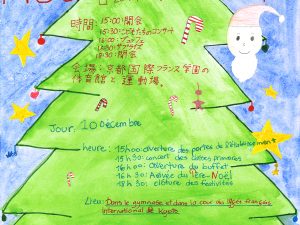 時間: 15:00 開会
15:30 こどもたちのコンサート
16:00 ビュッフェ
16:30 サプライズ
18:30 閉会
会場: 京都国際フランス学園の
体育館と運動場。
Jour: 10 Décembre
heure: 15h00: Ouverture des portes de l'établissement
15h30: concert des classes primaires
16h00: Ouverture du buffet
16h30: Arrivée du Père-Noël
18h30: clôture des festivités
Lieu: Dans le gymnase et dans la cour du lycée français
international de Kyoto